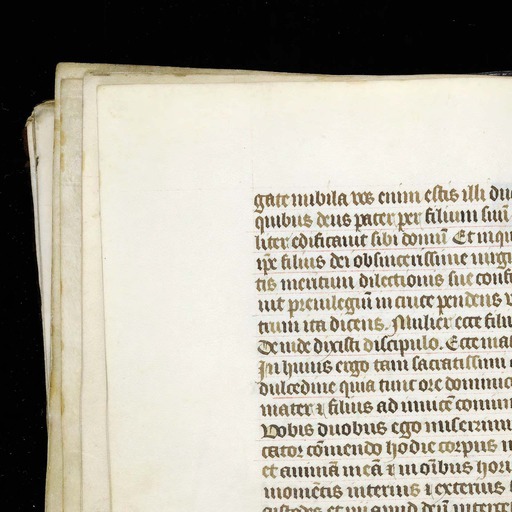 gate nubila vos enim estis illi du
quibus deus pater per filium suū
liter edificauit sibi domū Et in qu
ip̄e filius dei ob sincerissime virgi
tis meritum dilectionis sue conf
uit preuilegiū in cruce pendens v
trum ita dicens. Mulier ecce filiu
Deinde dixisti discipulo. Ecce mat
In huius ergo tam sacratissimi
dulcedine quia tunc ore dominic
mater ⁊ filius ad inuicē coniun
Vobis duobus ego miserrimu
cator cōmendo hodie corpus m
et animā meā ⁊ in oībus hori
momētis interius ⁊ exterius